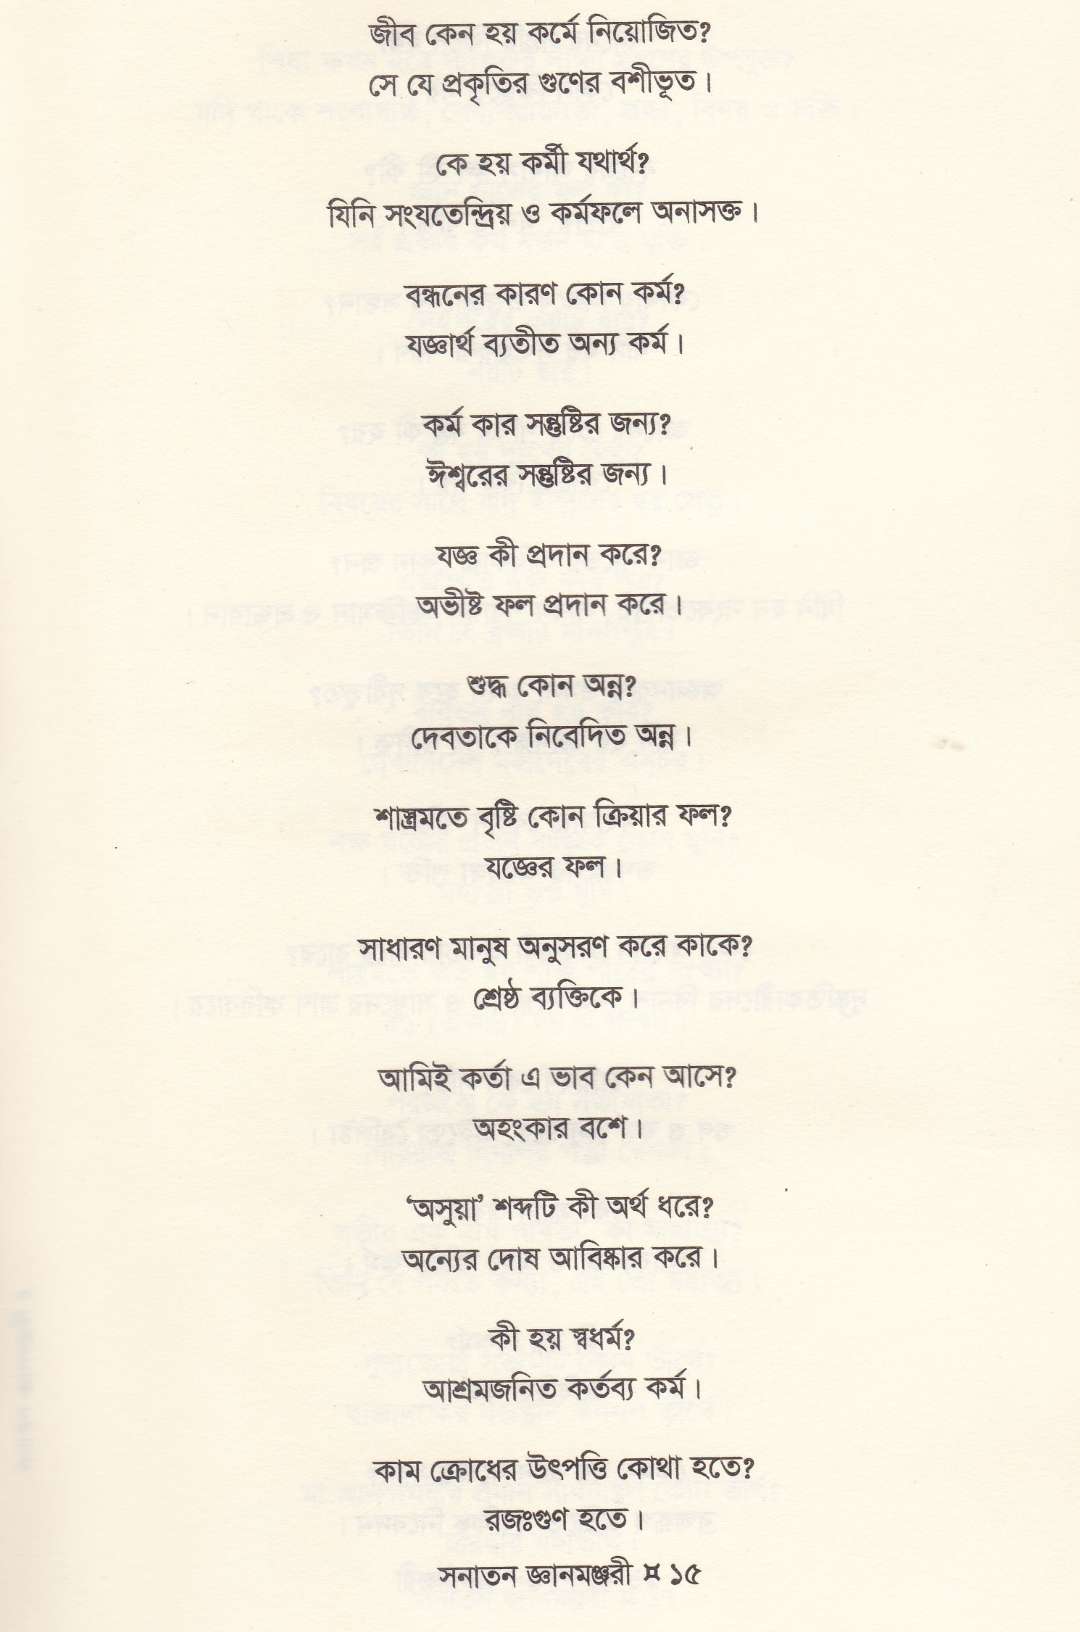 জীব কেন হয় কর্মে নিয়োজিত?
সে যে প্রকৃতির গুণের বশীভূত।
কে হয় কর্মী যথার্থ?
যিনি সংযতেন্দ্রিয় ও কর্মফলে অনাসক্ত।
বন্ধনের কারণ কোন কর্ম?
যজ্ঞার্থ ব্যতীত অন্য কর্ম।
কর্ম কার সন্তুষ্টির জন্য?
ঈশ্বরের সন্তুষ্টির জন্য।
যজ্ঞ কী প্রদান করে?
অভীষ্ট ফল প্রদান করে।
শুদ্ধ কোন অন্ন?
দেবতাকে নিবেদিত অন্ন।
শাস্ত্রমতে বৃষ্টি কোন ক্রিয়ার ফল?
যজ্ঞের ফল।
সাধারণ মানুষ অনুসরণ করে কাকে?
শ্রেষ্ঠ ব্যক্তিকে।
আমিই কর্তা এ ভাব কেন আসে?
অহংকার বশে।
‘অসুয়া’ শব্দটি কী অর্থ ধরে?
অন্যের দোষ আবিষ্কার করে।
কী হয় স্বধর্ম?
আশ্রমজনিত কর্তব্য কর্ম।
কাম ক্রোধের উৎপত্তি কোথা হতে?
রজঃগুণ হতে।
সনাতন জ্ঞানমঞ্জরী ¤ ১৫